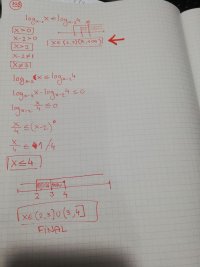 log x-2 x ≤ log x-2 4
x>0
x-2>0
x>2
x-2≠1
x≠3
x∈(2,3)∪(3,+∞)
log x-2 x ≤ log x-2 4
log x-2 x - log x-2 4 ≤ 0
log x-2 x/4 ≤ 0
x/4 ≤ (x-2)⁰
x/4 ≤ 1 /4
x ≤ 4
2 3 4
x∈(2,3)∪(3,4]
FINAL